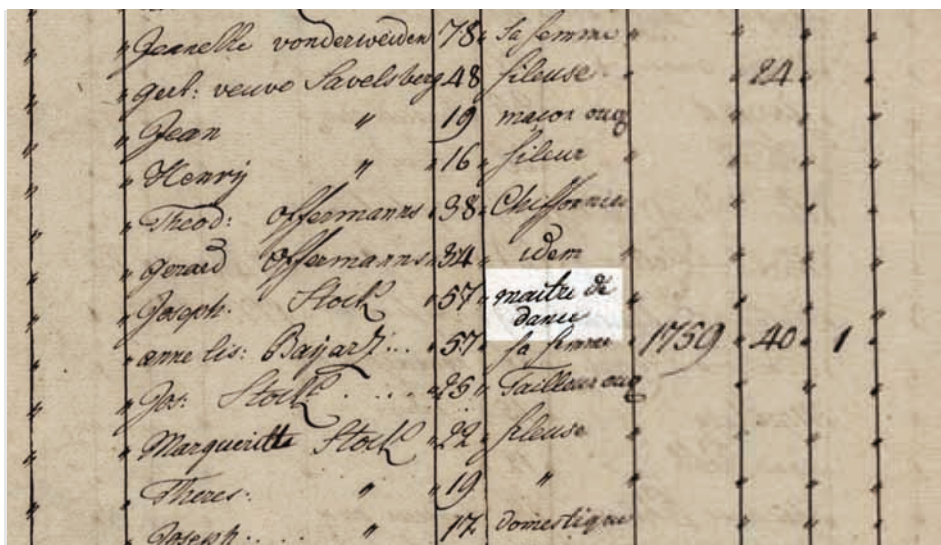 " " Jeanette vonderweiden 78 " sa femme " " " "
" " gert: veuve Savelsberg 48 " fileuse " 24 " "
" " Jean " " 19 " maçon ouv " " " "
" " Henrij " " 16 " fileur " " " "
" " Theod: Offermanns " 38 " Chiffonnier " " " "
" " gerard Offermanns " 34 " idem " " " "
" " Joseph: Stock " 57 " maitre de danse " " " "
" " anne lis: Baijart... " 57 " sa femme 1759 " 40 " 1 "
" " Jos: Stock .... " 25 " Tailleur ouv " " " "
" " Margueritte Stock " 22 " fileuse " " " "
" " Theres: " " 19 " " " " " "
" " Joseph.... " 17 " Domestique " " " "